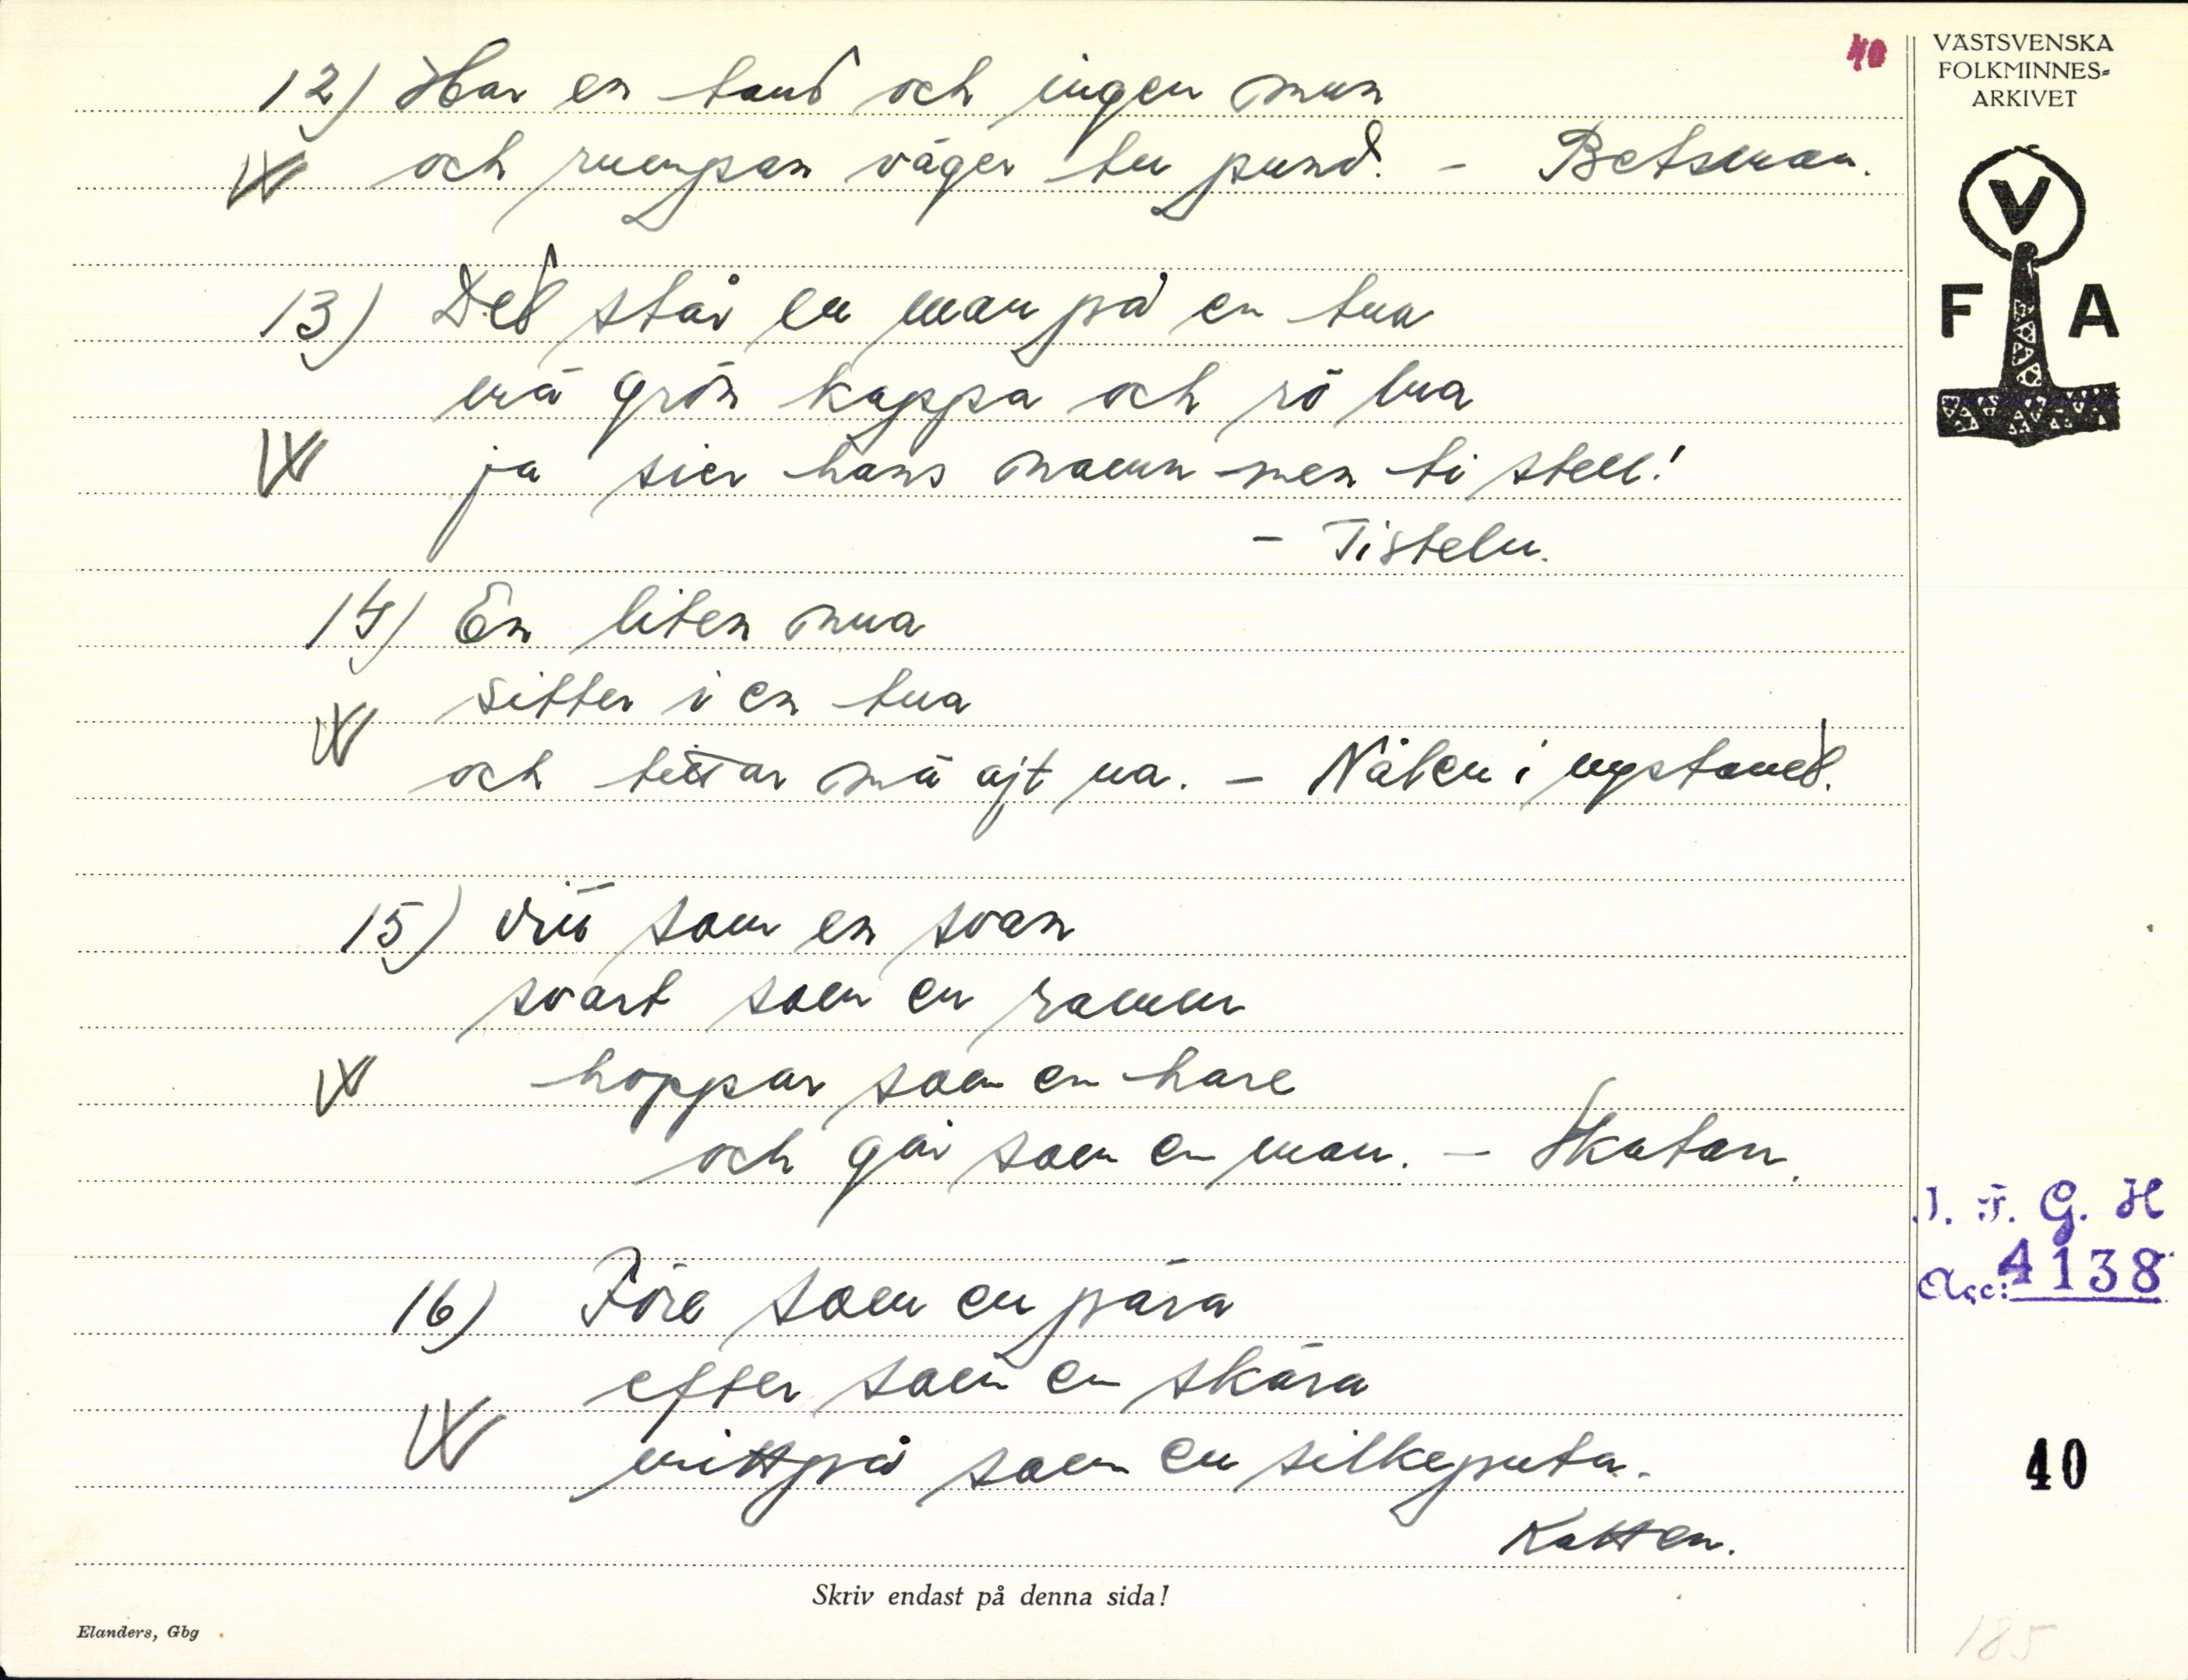 40
VÄSTSVENSKA
FOLKMINNES-
ARKIVET
V
F A
12) Har en tand och ingen mun
och rumpan väger tu pund. - Betsman.
13) Ded står en man på en tua
mä grön kappa och rö lua
ja sier hans namn men ti stell!
- Tisteln.
14) En liten mua
sitter i en tua
och tittar mä ajt ua. - Nålen i nystaned.
15) Vit som en svan
svart som en ramm
hoppar som en hare
och går som en man. - Skatan.
16) Före som en pära
efter som en skära
mittpå som en silkeputa.
Katten.
I. F. G. H
Acc: 4138
40
Skriv endast på denna sida!
Elanders, Gbg
185